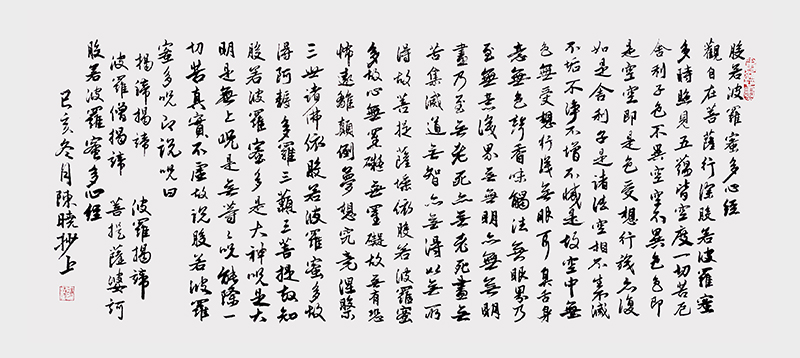 般若波羅蜜多心經
觀自在菩薩行深般若波羅蜜
多時照見五蘊皆空度一切苦厄
舍利子色不異空空不異色色即
是空空即是色受想行識亦復
如是舍利子是諸法空相不生不滅
不垢不淨不增不減是故空中無
色無受想行識無眼耳鼻舌身
意無色聲香味觸法無眼界乃
至無意識界無無明亦無無明
盡乃至無老死亦無老死盡無
苦集滅道無智亦無得以無所
得故菩提薩埵依般若波羅蜜
多故心無罣礙無罣礙故無有恐
怖遠離顛倒夢想究竟涅槃
三世諸佛依般若波羅蜜多故
得阿耨多羅三藐三菩提故知
般若波羅蜜多是大神呪是大
明是無上呪是無等々呪能除一
切苦真實不虛故說般若波羅
蜜多呪即說呪曰
揭諦揭諦 波羅揭諦
波羅僧揭諦 菩提薩婆訶
般若波羅蜜多心經
己亥冬月陳曉抄上